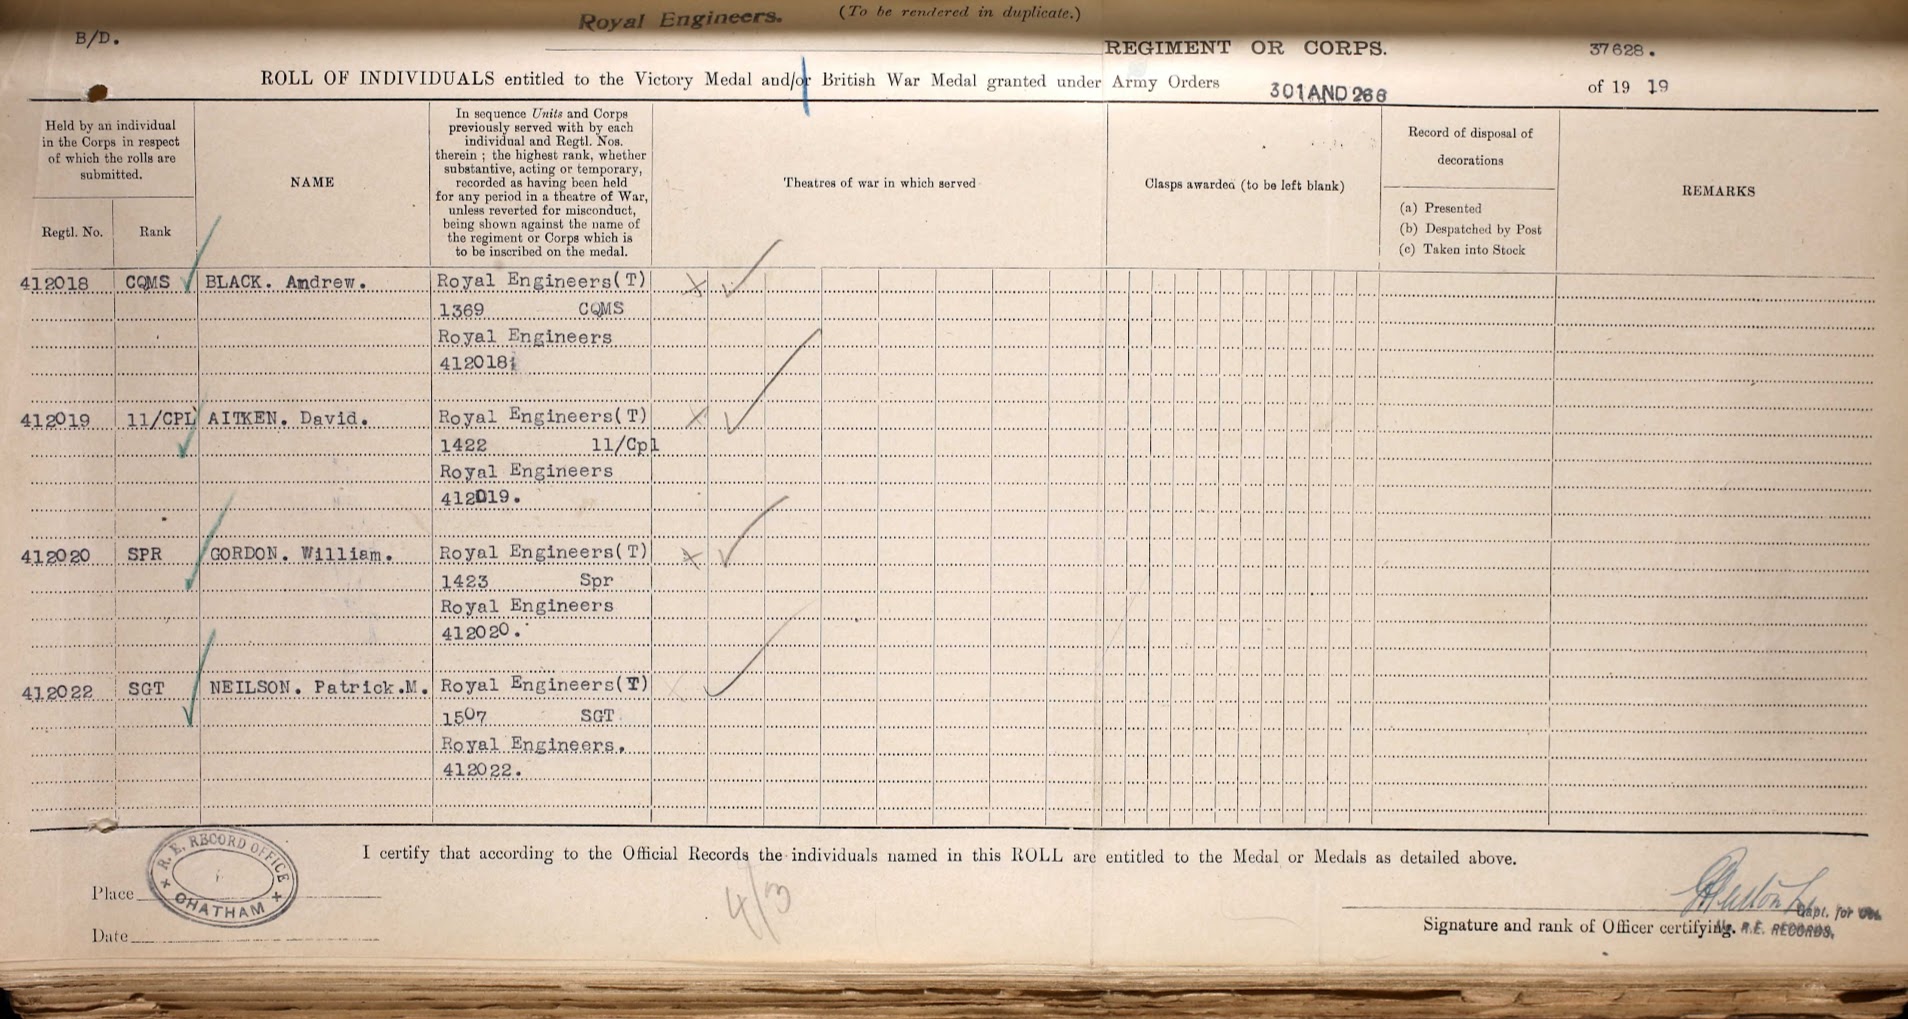 Royal Engineers.
(To be rendered in duplicate.)
B/D.
REGIMENT OR CORPS.
37628.
ROLL OF INDIVIDUALS entitled to the Victory Medal and/or British War Medal granted under Army Orders 301 AND 266 of 19 19
Held by an individual
in the Corps in respect
of which the rolls are
submitted.
Regtl. No.
Rank
NAME
In sequence Units and Corps
previously served with by each
individual and Regtl. Nos.
therein ; the highest rank, whether
substantive, acting or temporary,
recorded as having been held
for any period in a theatre of War,
unless reverted for misconduct,
being shown against the name of
the regiment or Corps which is
to be inscribed on the medal.
Theatres of war in which served
Clasps awarded (to be left blank)
Record of disposal of
decorations
(a) Presented
(b) Despatched by Post
(c) Taken into Stock
REMARKS
412018 CQMS BLACK. Andrew. Royal Engineers(T)
1369 CQMS
Royal Engineers
412018
412019 11/CPL AITKEN. David. Royal Engineers(T)
1422 11/Cpl
Royal Engineers
412019.
412020 SPR GORDON. William. Royal Engineers(T)
1423 Spr
Royal Engineers
412020.
412022 SGT NEILSON. Patrick.M. Royal Engineers(T)
1507 SGT
Royal Engineers.
412022.
I certify that according to the Official Records the individuals named in this ROLL are entitled to the Medal or Medals as detailed above.
R.E. RECORD OFFICE
CHATHAM
Place
Date
4/3
Capt. for
Signature and rank of Officer certifying.
R.E. RECORDS.